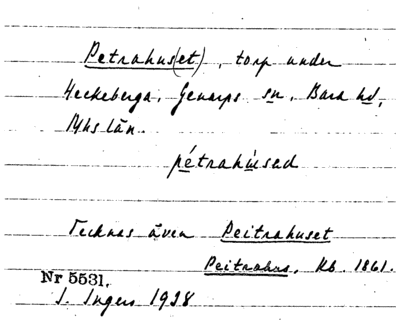 Petrahus(et), torp under
Heckeberga, Genarps sn, Bara hd,
Mhs län.
pétrahùsad
Tecknas även Peitrahuset
Peitrahus, Kb. 1861.
Nr 5531.
I. Ingers 1928